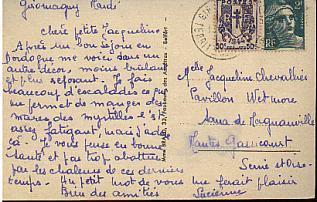 Giromagny Mardi
Chère petite Jacqueline
Après un bon séjour en
Dordogne me voici dans un
autre décor, moins brûlant
et reposant. Je fais
beaucoup d'escalades ce qui
me permet de manger des
mures des myrtilles c'est
assez fatigant, mais j'adore
ça. Je vous pense en bonne
santé et pas trop abattue
par les chaleurs de ces derniers
temps. Un petit mot de vous me ferait plaisir
Bien des amitiés
Lucienne
RF
Melle Jacqueline Chevallier
Pavillon Wetmore
Seine et Oise